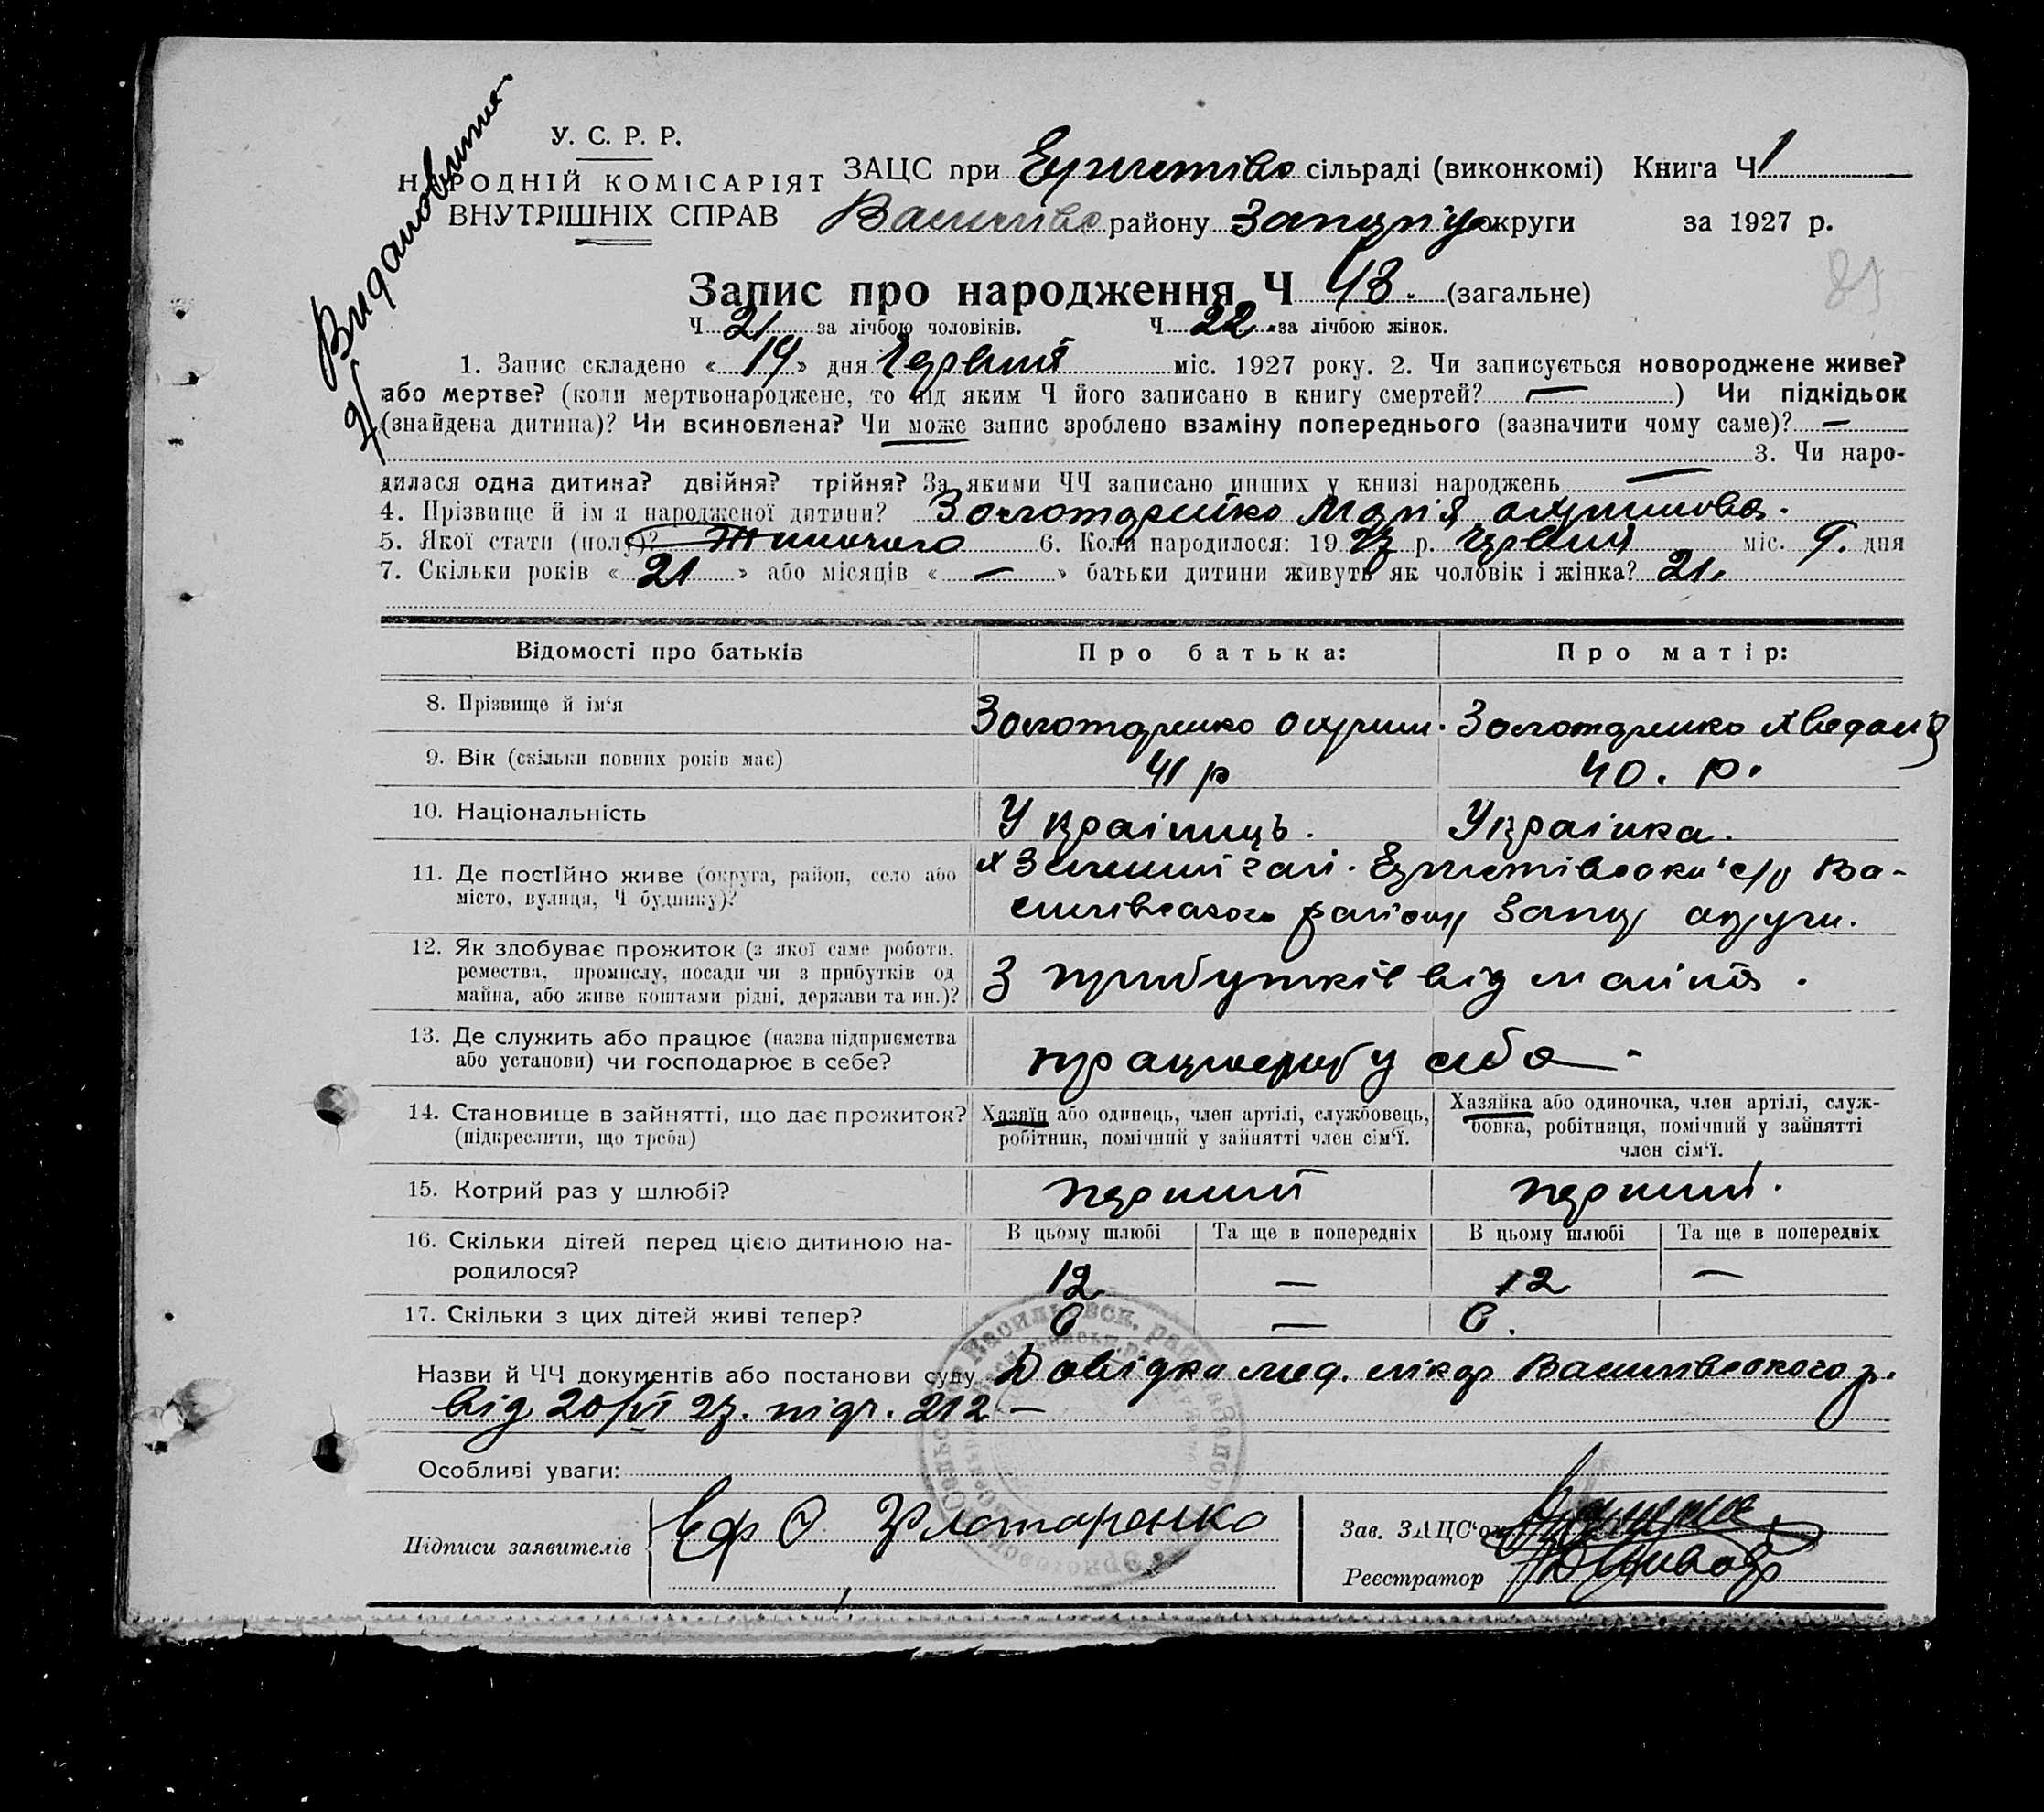 Видано витяг
У. С. Р. Р.
НАРОДНІЙ КОМІСАРІЯТ
ВНУТРІШНІХ СПРАВ
ЗАЦС при сільраді (виконкомі) Книга Ч 1
району округи за 1927 р.
Запис про народження Ч 43. (загальне)
Ч 21 за лічбою чоловіків. Ч 22 за лічбою жінок.
1. Запис складено « 19 » дня Червня міс. 1927 року. 2. Чи записується новороджене живе?
або мертве? (коли мертвонароджене, то під яким Ч його записано в книгу смертей? — ) Чи підкідьок
(знайдена дитина)? Чи всиновлена? Чи може запис зроблено взаміну попереднього (зазначити чому саме)? —
3. Чи наро-
дилася одна дитина? двійня? трійня? За якими ЧЧ записано инших у книзі народжень —
4. Прізвище й ім я народженої дитини? Золотаренко Марія Охримова.
5. Якої стати (полу)? Жиночого 6. Коли народилося: 19 27 р. Червня міс. 9. дня
7. Скільки років « 21 » або місяців « — » батьки дитини живуть як чоловік і жінка? 21.
Відомості про батьків Про батька: Про матір:
8. Прізвище й ім'я Золотаренко Охрим. Золотаренко
9. Вік (скільки повних років має) 41 р 40. р.
10. Національність Українець. Українка.
11. Де постійно живе (округа, район, село або
місто, вулиця, Ч будинку)?
х Зелений гай. с/р Ва-
силівського району Запор округи.
12. Як здобуває прожиток (з якої саме роботи,
ремества, промислу, посади чи з прибутків од
майна, або живе коштами рідні, держави та ин.)?
З прибутків від майна.
13. Де служить або працює (назва підприємства
або установи) чи господарює в себе?
у себе
14. Становище в зайнятті, що дає прожиток?
(підкреслити, що треба)
Хазяїн або одинець, член артілі, службовець,
робітник, помічний у зайнятті член сім'ї.
Хазяйка або одиночка, член артілі, служ-
бовка, робітниця, помічний у зайнятті
член сім'ї.
15. Котрий раз у шлюбі? перший перший.
16. Скільки дітей перед цією дитиною на-
родилося?
В цьому шлюбі Та ще в попередніх В цьому шлюбі Та ще в попередніх
12 — 12 —
17. Скільки з цих дітей живі тепер? 6 — 6.
Назви й ЧЧ документів або постанови суду Довідка мед. лікар Василівського р.
від 20/VI 27. 212 —
Особливі уваги:
Підписи заявителів Золотаренко
Зав. ЗАЦС'ом
Реєстратор